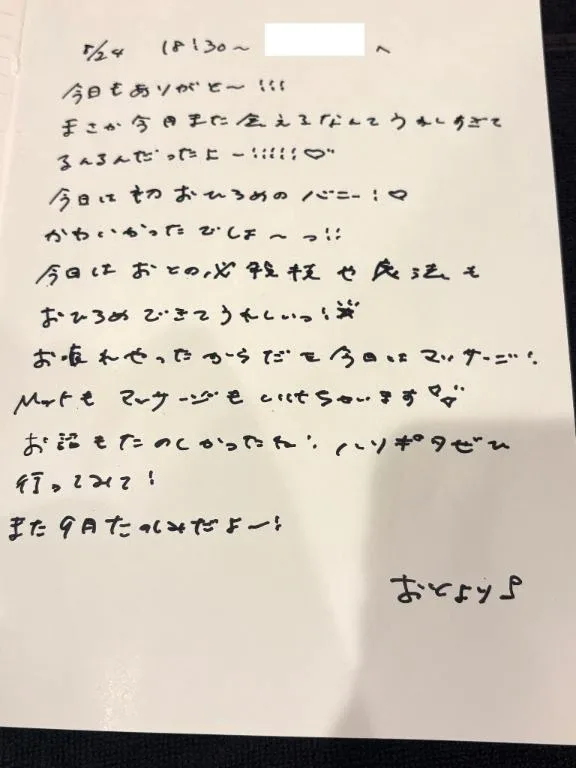 8/24 18:30〜 へ
今日もありがと〜!!!
まさか今月また会えるなんてうれしすぎて
るんるんだったよー!!!!!♡
今日は初おひろめのバニー!♡
かわいかったでしょ〜っ!!
今日はおとの必殺技や魔法も
おひろめできてうれしいっ!
お疲れやったからだを今日はマッサージ!
Mットもマッサージもいけちゃいます♡
お話もたのしかったね! ハリポタぜひ
行ってみて!
また9月たのしみだよー!
おとより♪